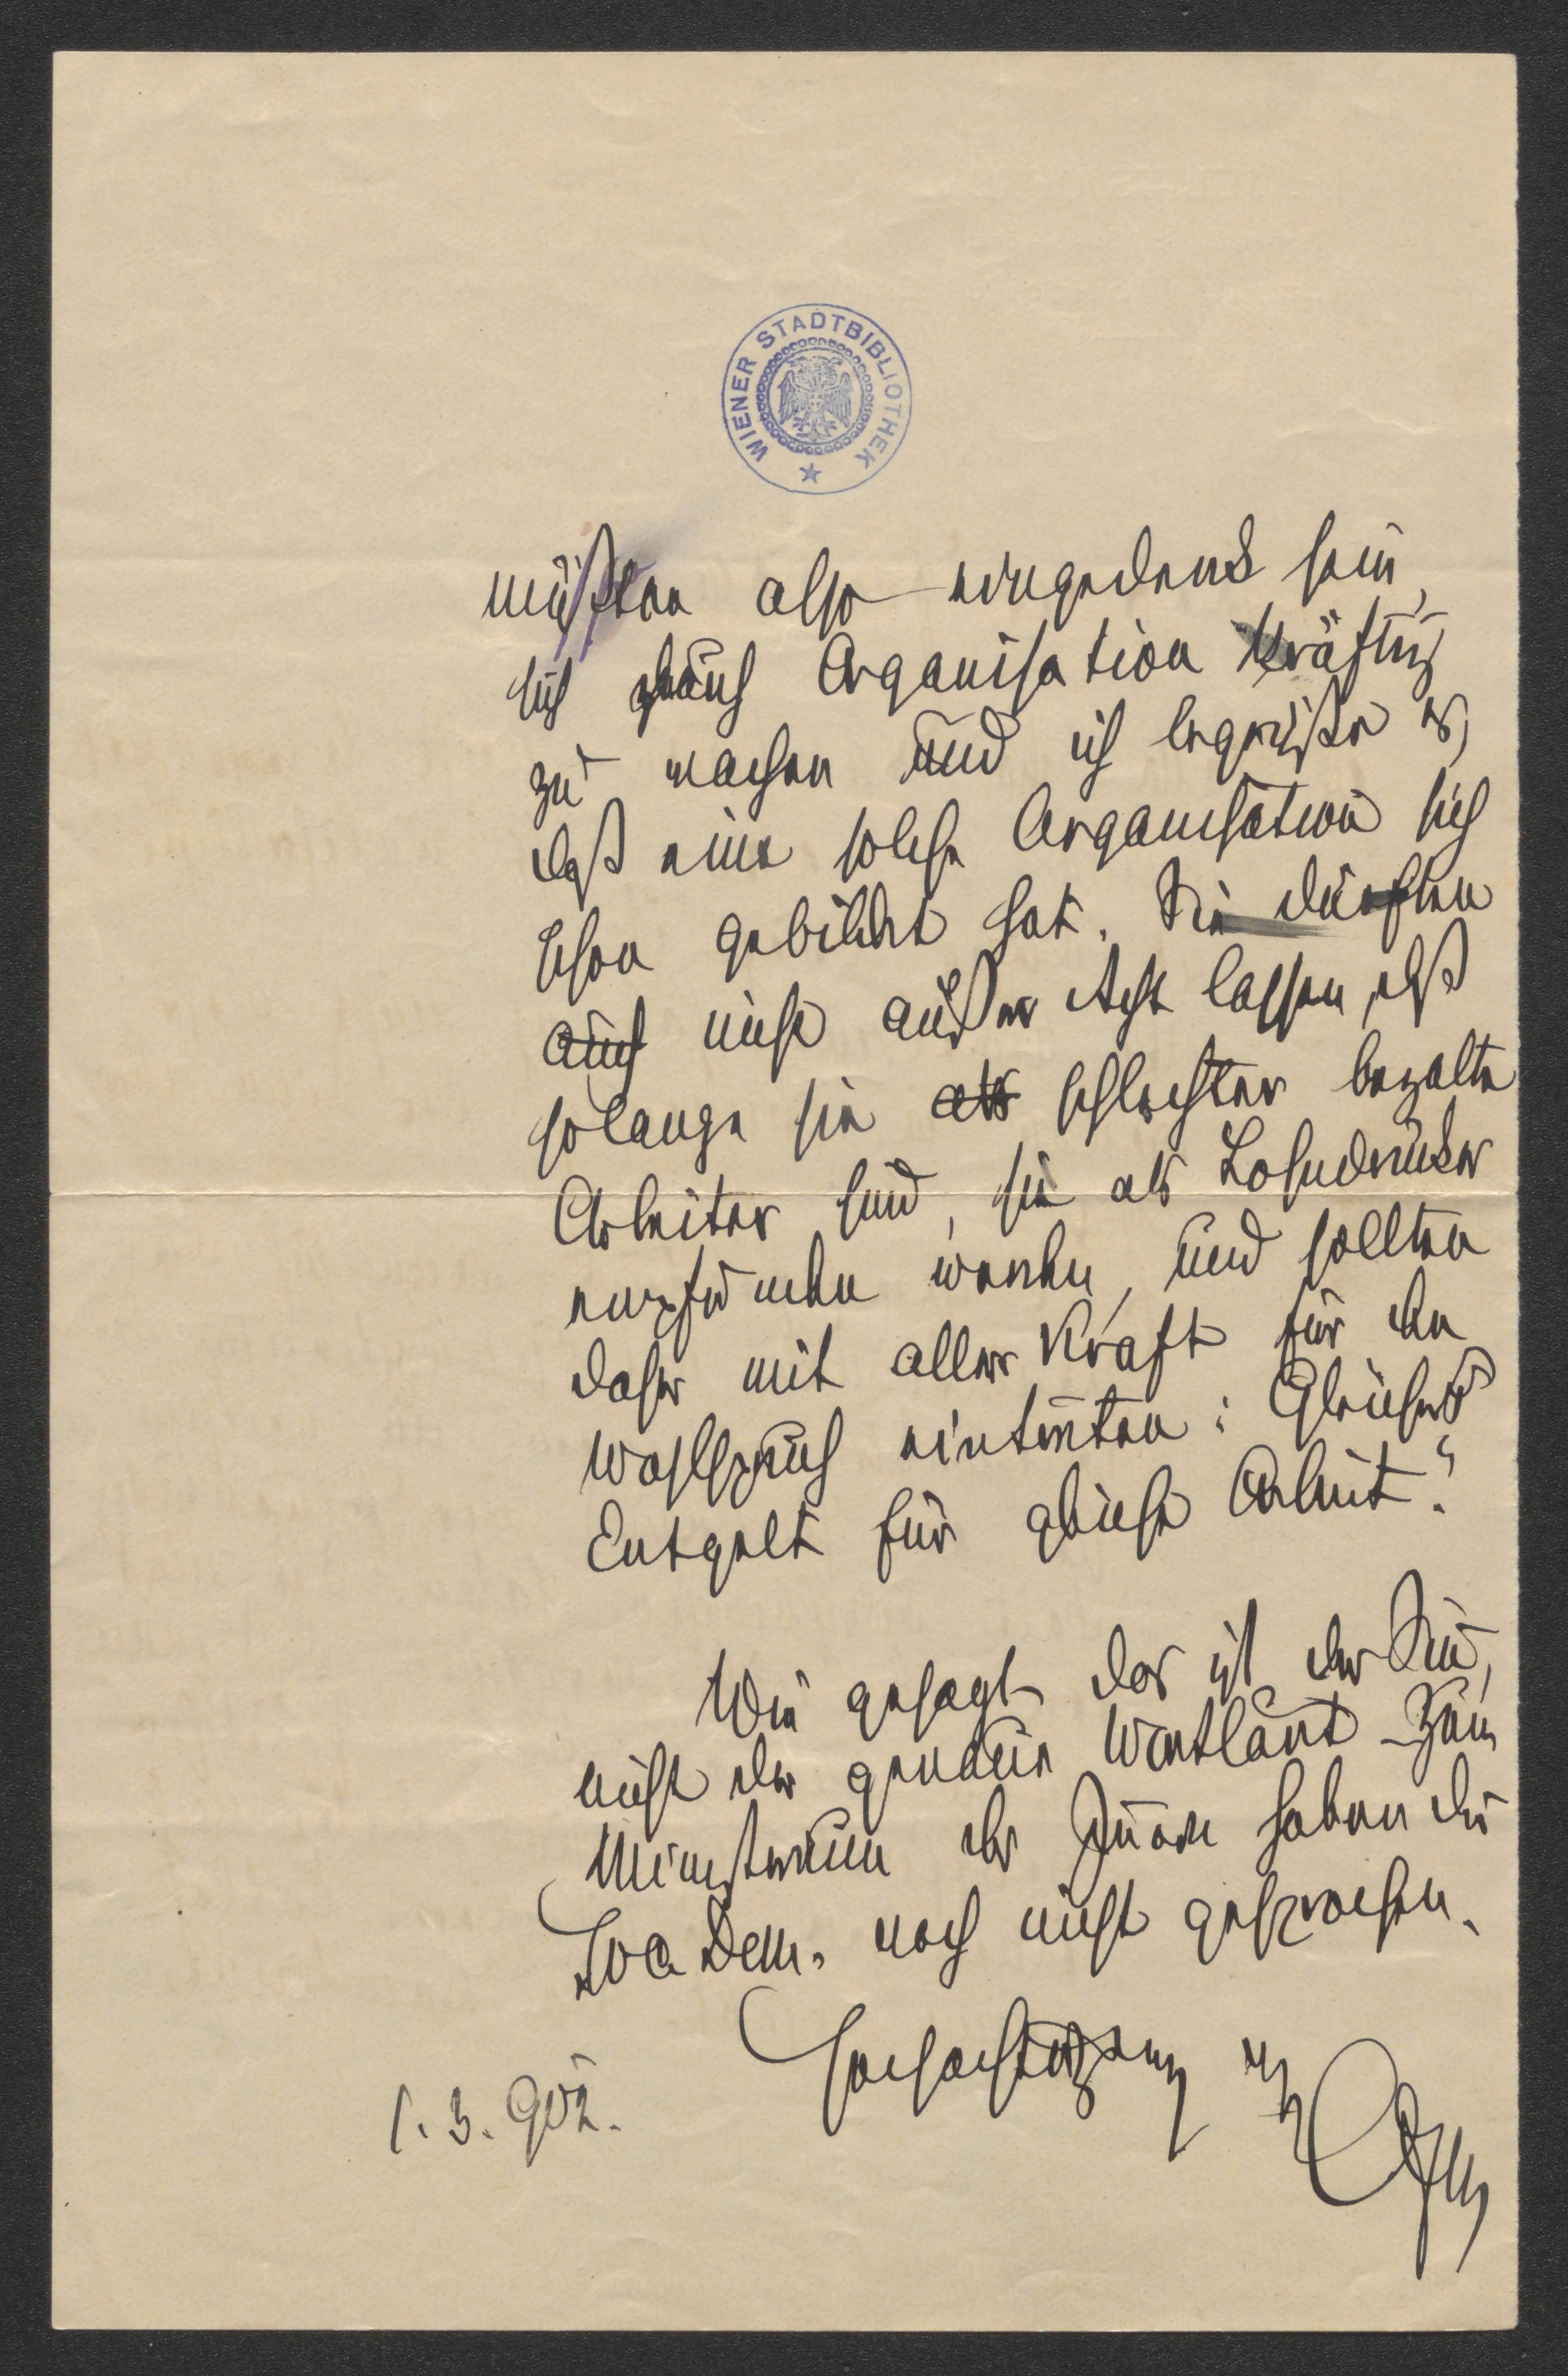 WIENER STADTBIBLIOTHEK
müßten also eingedenk sein,
sich durch Organisation kräftig
zu machen und ich begrüße es,
daß eine solche Organisation sich
schon gebildet hat. Sie dürften
auch nicht außer Acht lassen, daß
solange sie als schlechter bezalte
Arbeiter sind, sie als Lohndrücker
empfunden werden, und sollten
daher mit aller Kraft für den
Wahlspruch eintreten: Gleiches
Entgelt für gleiche Arbeit."
Wie gesagt das ist der Sinn,
nicht der genaue Wortlaut. Zum
Ministerium des Innern haben die
Soc. Dem. noch nicht gesprochen.
Hochachtungsvoll
1. 3. 902.